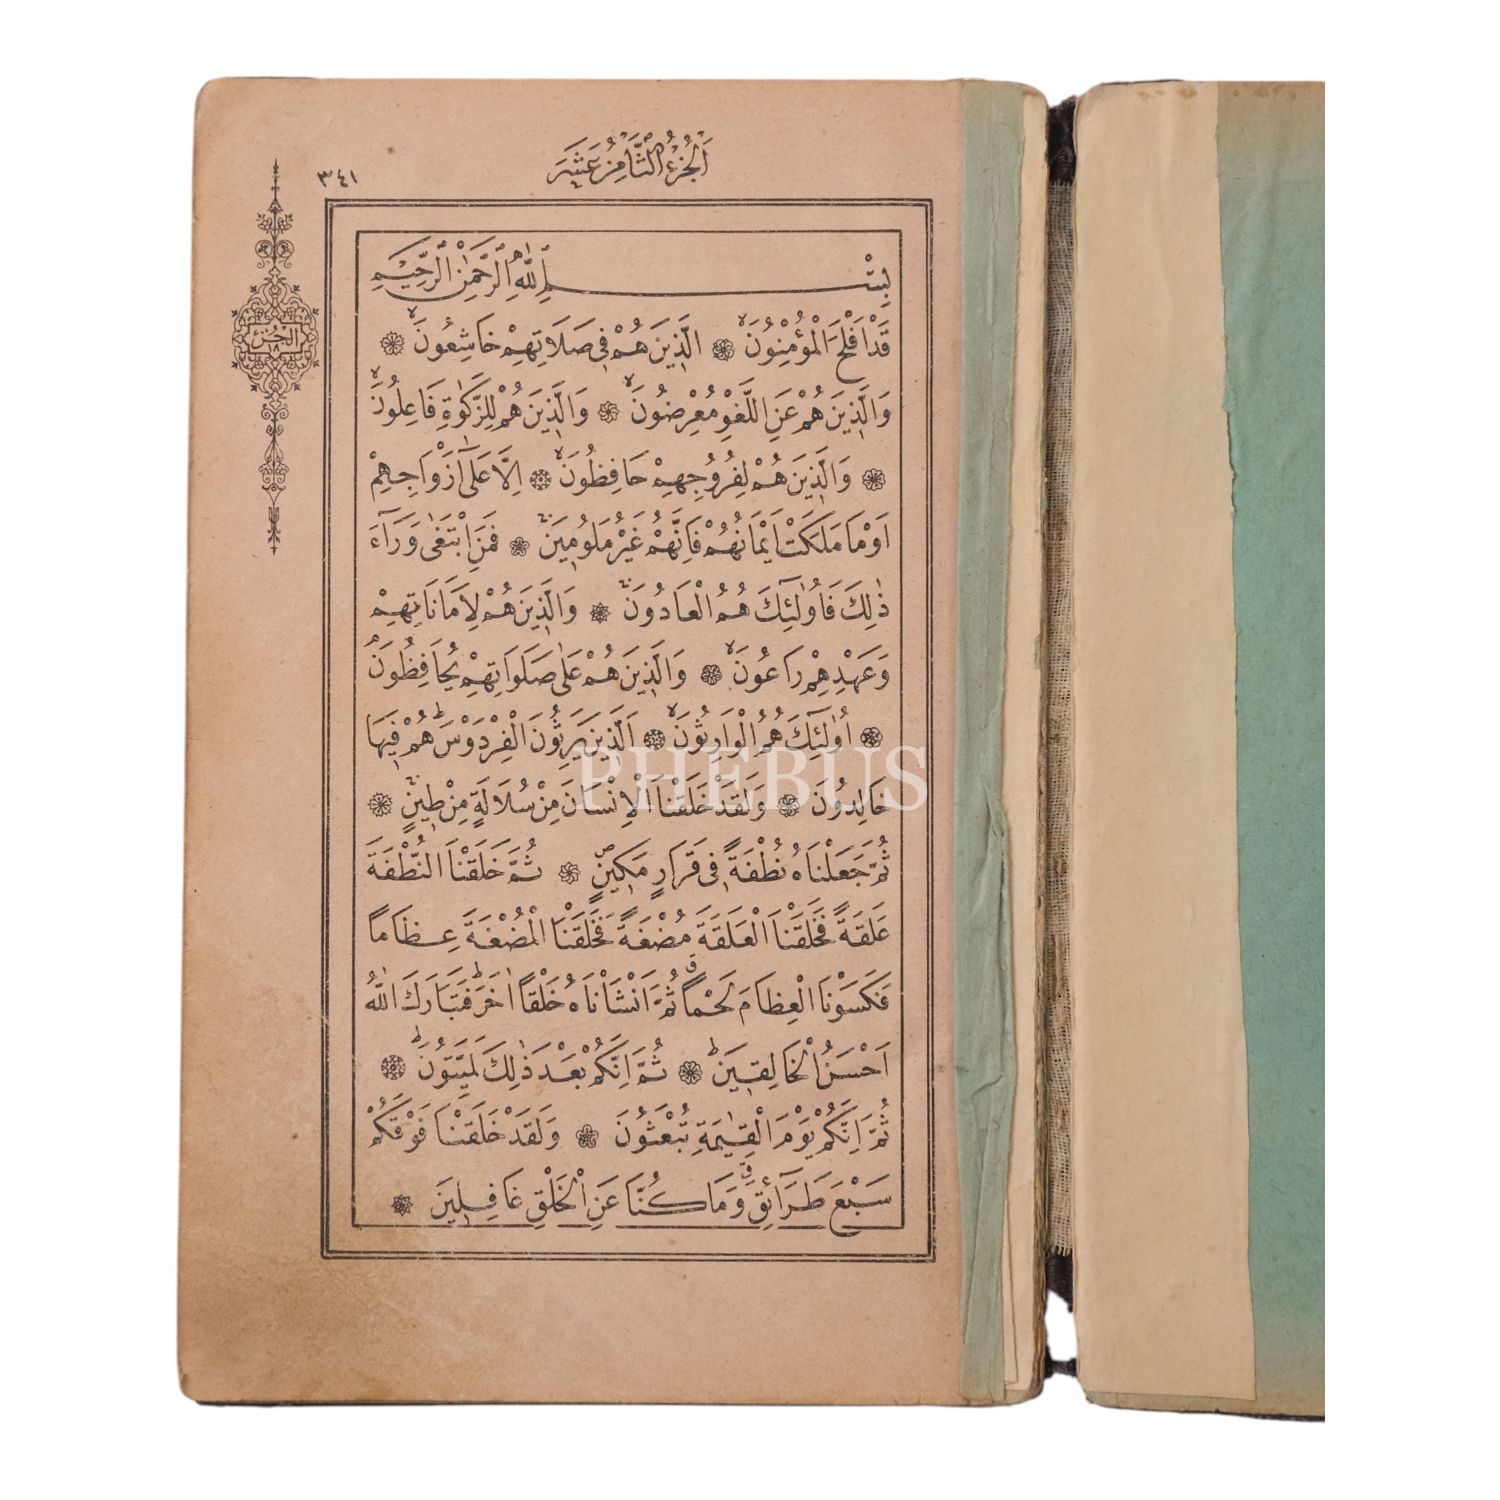 اَلْجُزْءُ الثَّامِنْ عَشَرَ
٣٤١
الجزء
١٨
بِسْمِ اللّٰهِ الرَّحْمٰنِ الرَّحِيمِ
قَدْ اَفْلَحَ الْمُؤْمِنُونَۙ ❁ اَلَّذِينَ هُمْ فِى صَلَاتِهِمْ خَاشِعُونَۙ ❁
وَالَّذِينَ هُمْ عَنِ اللَّغْوِ مُعْرِضُونَۙ ❁ وَالَّذِينَ هُمْ لِلزَّكٰوةِ فَاعِلُونَۙ
❁ وَالَّذِينَ هُمْ لِفُرُوجِهِمْ حَافِظُونَۙ ❁ اِلَّا عَلٰٓى اَزْوَاجِهِمْ
اَوْ مَا مَلَكَتْ اَيْمَانُهُمْ فَاِنَّهُمْ غَيْرُ مَلُومِينَۚ ❁ فَمَنِ ابْتَغٰى وَرَآءَ
ذٰلِكَ فَاُولٰٓئِكَ هُمُ الْعَادُونَۚ ❁ وَالَّذِينَ هُمْ لِاَمَانَاتِهِمْ
وَعَهْدِهِمْ رَاعُونَۙ ❁ وَالَّذِينَ هُمْ عَلٰى صَلَوَاتِهِمْ يُحَافِظُونَۘ
❁ اُولٰٓئِكَ هُمُ الْوَارِثُونَۙ ❁ اَلَّذِينَ يَرِثُونَ الْفِرْدَوْسَۜ هُمْ فِيهَا
خَالِدُونَ ❁ وَلَقَدْ خَلَقْنَا الْاِنْسَانَ مِنْ سُلَالَةٍ مِنْ طِينٍۚ ❁
ثُمَّ جَعَلْنَاهُ نُطْفَةً فِى قَرَارٍ مَكِينٍۖ ❁ ثُمَّ خَلَقْنَا النُّطْفَةَ
عَلَقَةً فَخَلَقْنَا الْعَلَقَةَ مُضْغَةً فَخَلَقْنَا الْمُضْغَةَ عِظَامًا
فَكَسَوْنَا الْعِظَامَ لَحْمًاۗ ثُمَّ اَنْشَاْنَاهُ خَلْقًا اٰخَرَۜ فَتَبَارَكَ اللّٰهُ
اَحْسَنُ الْخَالِقِينَۜ ❁ ثُمَّ اِنَّكُمْ بَعْدَ ذٰلِكَ لَمَيِّتُونَۜ ❁
ثُمَّ اِنَّكُمْ يَوْمَ الْقِيٰمَةِ تُبْعَثُونَ ❁ وَلَقَدْ خَلَقْنَا فَوْقَكُمْ
سَبْعَ طَرَآئِقَۗ وَمَا كُنَّا عَنِ الْخَلْقِ غَافِلِينَ ❁
PHEBUS